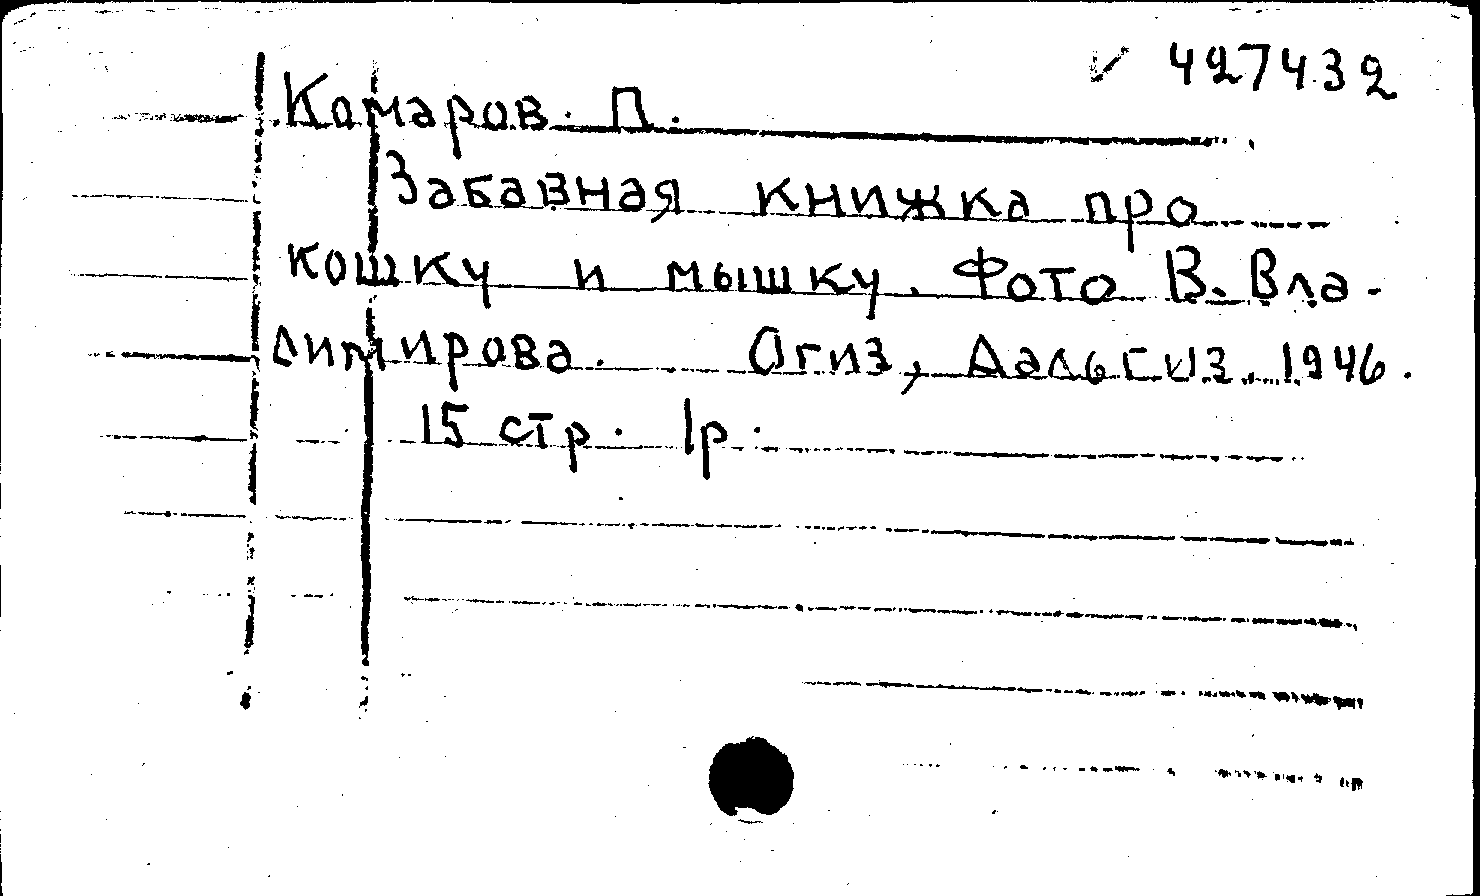 427432
Комаров. П.
Забавная книжка про
кошку и мышку. Фото В. Вла-
димирова. Огиз, Дальгиз. 1946.
15 стр. 1р.